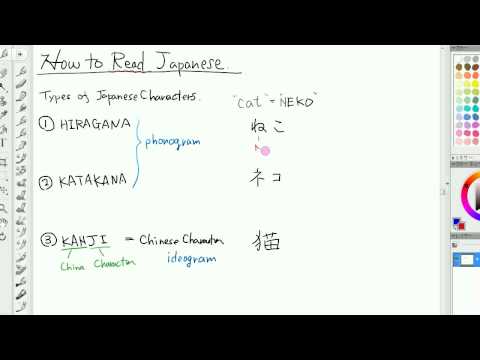 How to Read Japanese.
Types of Japanese Characters.
"cat" = NEKO"
① HIRAGANA
ねこ
phonogram
② KATAKANA
ネコ
③ KANJI = Chinese Character
猫
China Character
ideogram